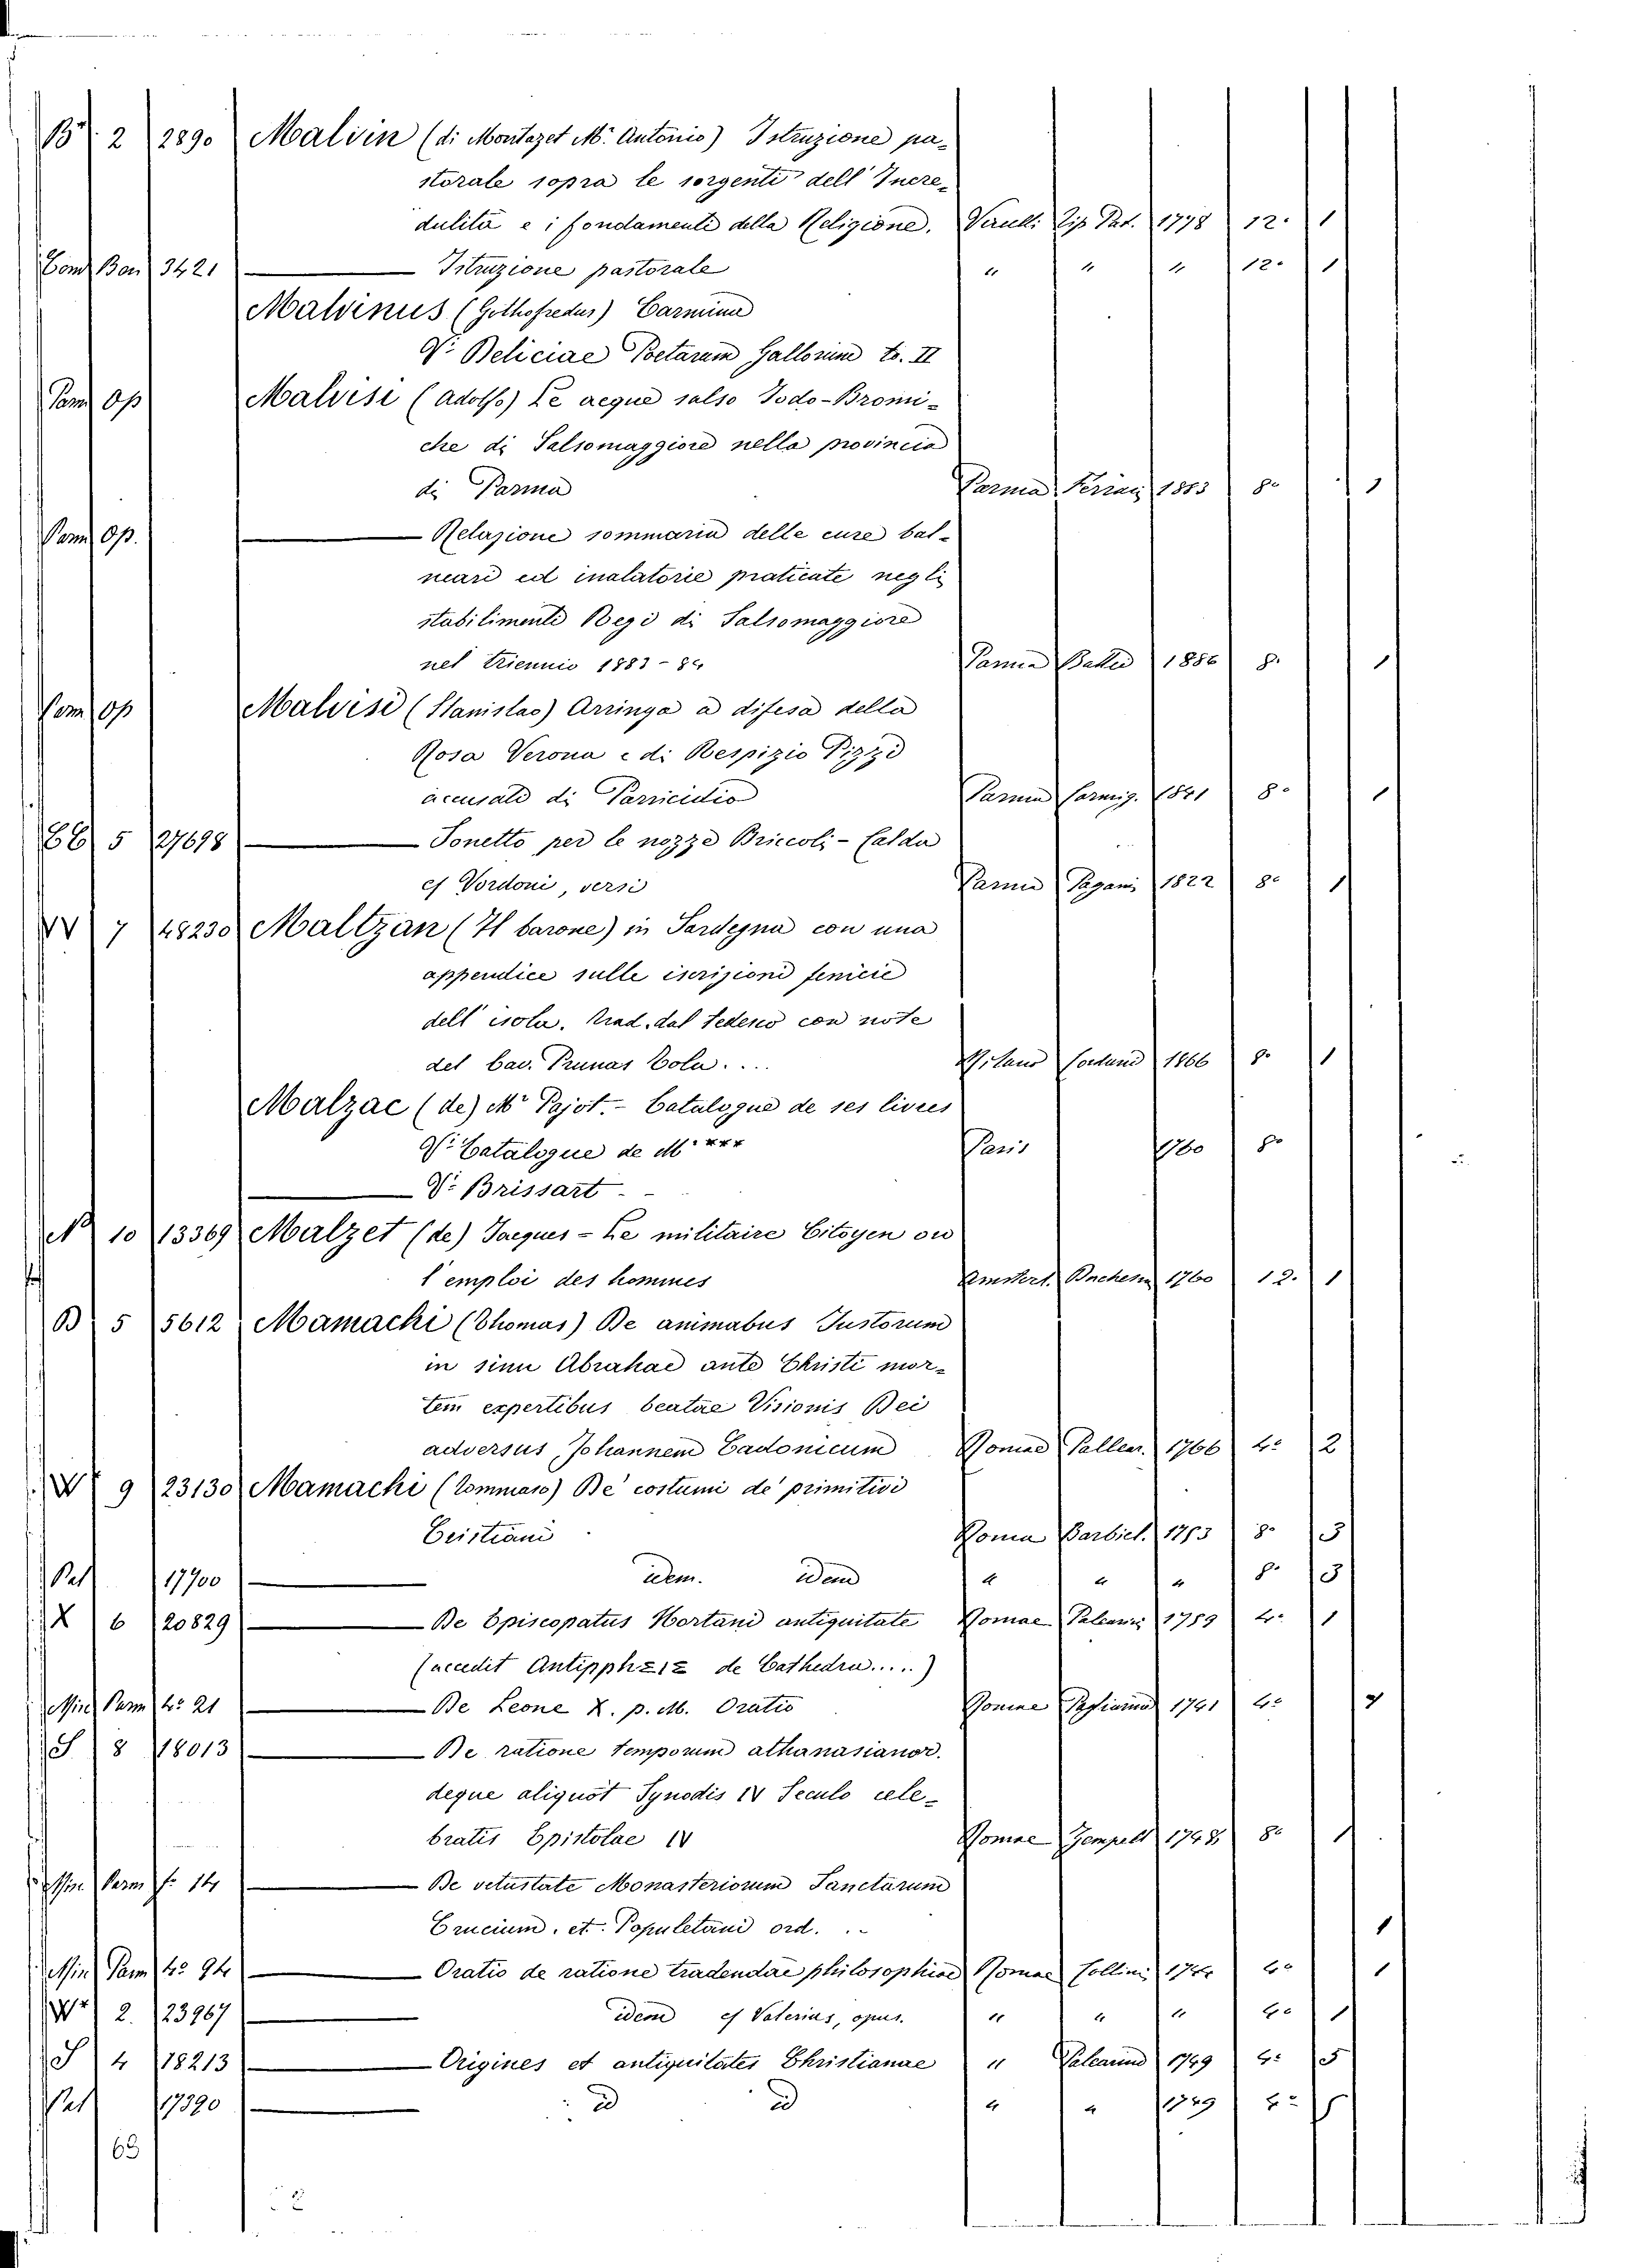 B.r 2 2890 Malvin (di Montazet M.r Antonio) Istruzione pa-
storale sopra le sorgenti dell' Incre-
dulità e i fondamenti della Religione. Vercelli Tip. Pat. 1778 12.° 1
3421 — Istruzione pastorale " " " 12.° 1
Malvinus (Gothofredus) Carmina
V. Deliciae Poetarum Gallorum to. II
Parm Op Malvisi (Adolfo) Le acque salso Jodo-Bromi-
che di Salsomaggiore nella provincia
di Parma Parma Ferrari 1883 8.° 1
Parm Op. — Relazione sommaria delle cure bal-
neari ed inalatorie praticate negli
stabilimenti Regi di Salsomaggiore
nel triennio 1883-84 Parma Battei 1886 8. 1
Parm Op Malvisi (Stanislao) Arringa a difesa della
Rosa Verona e di Respizio Pizzi
accusati di Parricidio Parma Carmig. 1841 8.° 1
5 27698 — Sonetto per le nozze Briccoli - Calda
cf Vordoni, versi Parma Pagani 1822 8.° 1
VV 7 48230 Maltzan (Il barone) in Sardegna con una
appendice sulle iscrizioni fenicie
dell' isola. trad. dal tedesco con note
del cav. Prunas Tola.... Milano 1866 8.° 1
Malzac (de) M.r Pajot. - Catalogue de ses livres
V. Catalogue de M. *** Paris 1760 8.°
— V. Brissart - -
N 10 13369 Malzet (de) Jacques - Le militaire Citoyen ou
l'emploi des hommes Amsterd. 1760 12. 1
B 5 5612 Mamachi (Thomas) De animabus Justorum
in sinu Abrahae ante Christi mor-
tem expertibus beatae Visionis Dei
adversus Johannem Cadonicum Romae Pallear. 1766 4.° 2
W 9 23130 Mamachi (Tommaso) De' costumi de' primitivi
Cristiani Roma 1753 8.° 3
Pal 17700 — idem. idem " " " 8.° 3
X 6 20829 — De Episcopatus Hortani antiquitate Romae Palearini 1759 4.° 1
(accedit de Cathedra.....)
Min Parm 4.° 21 — De Leone X. p. M. Oratio Romae Pagliarini 1741 4.°
S 8 18013 — De ratione temporum athanasianor.
deque aliquot Synodis IV Seculo cele-
bratis Epistolae IV Romae 1748 8.° 1
Parm f.° 14 — De vetustate Monasteriorum Sanctarum
Crucium, et. Populetani ord. .. 1
Min Parm 4.° 94 — Oratio de ratione tradendae philosophiae Romae Collini 4.° 1
2. 23967 — idem cf Valerius, opus. " " " 4.° 1
S 4 18213 — Origines et antiquitates Christianae " Palearini 1749 4.° 5
Pal 17390 — id id " " 1749 4.° 5
63
2